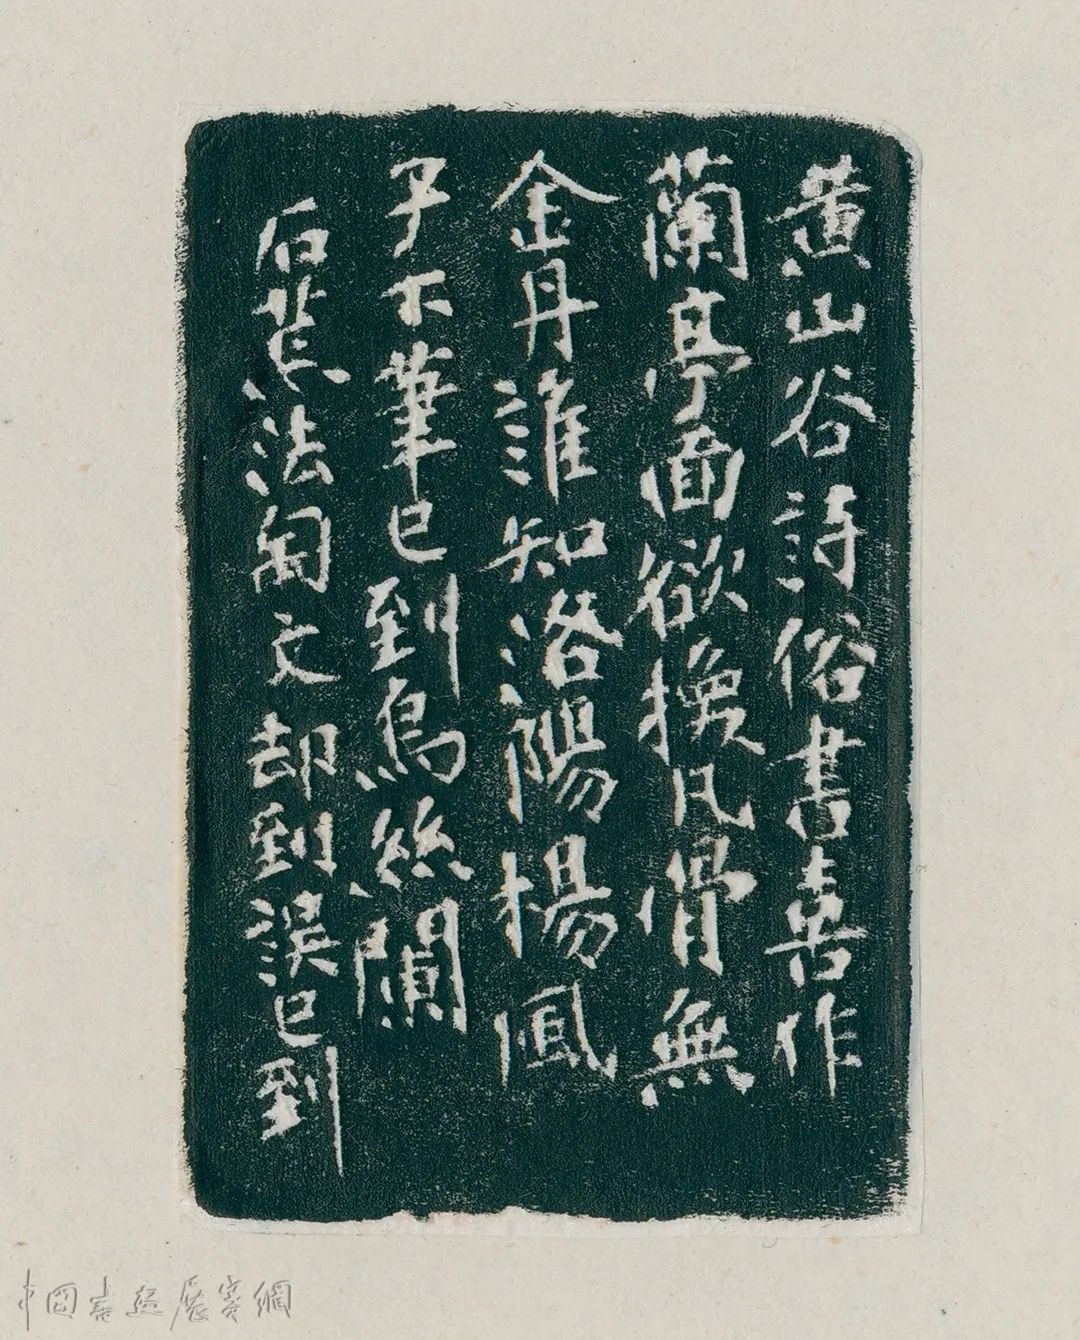 黄山谷詩俗書喜作
蘭亭面欲換凡骨無
金丹誰知洛陽楊風
子下筆已到烏絲闌
石法匋文却到誤已到
中国書画展賽網